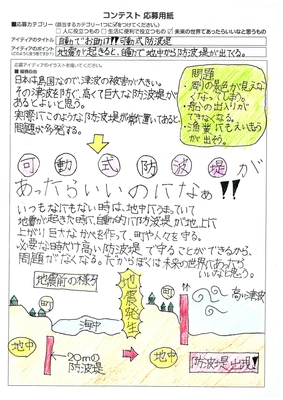 コンテスト 応募用紙
■応募カテゴリー
人に役立つもの
生活に便利で役立つもの
未来の世界であってもいいなと思うもの
アイディアのタイトル
自動でお助け!!可動式防波堤
アイディアのポイント
地震が起きると、自動で地中から防波堤が出てくる。
日本は島国なので、津波の被害が大きい。
その津波を防ぐ、高くて巨大な防波堤が
あるとよいと思う。
実際にこのような防波堤が
問題が発生する。
問題
・周りの景色が見えな
くなってしまう。
・船の出入りが
できなくなる。
・漁業にもえいきょう
が出そう。
可動式防波堤が
あったらいいのになぁ!!
いつもなにもない時は、地中にうまっていて
地震が起きた時に、自動的に防波堤が地上に
上がり巨大なかべを作って、町や人々を守る。
・必要な時だけ高い防波堤で守ることができるから、
問題がなくなる。だからぼくは未来の世界にあったら
いいなと思う。
地震前の様子
地震発生
高い津波
海中
地中
20mの
防波堤
地中
防波堤出現!